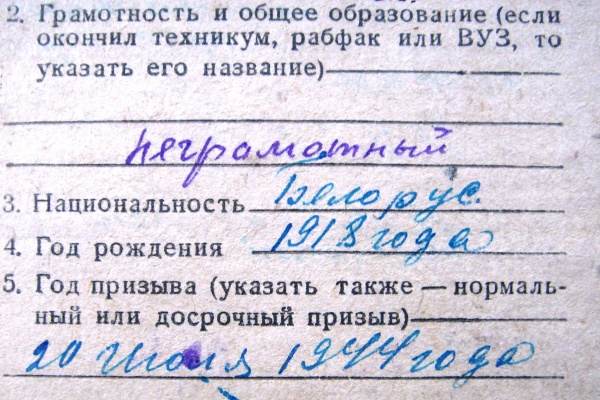 2. Грамотность и общее образование (если
окончил техникум, рабфак или ВУЗ, то
указать его название)
неграмотный
3. Национальность Белорус.
4. Год рождения 1918 года
5. Год призыва (указать также — нормаль-
ный или досрочный призыв)
20 Июля 1944 года